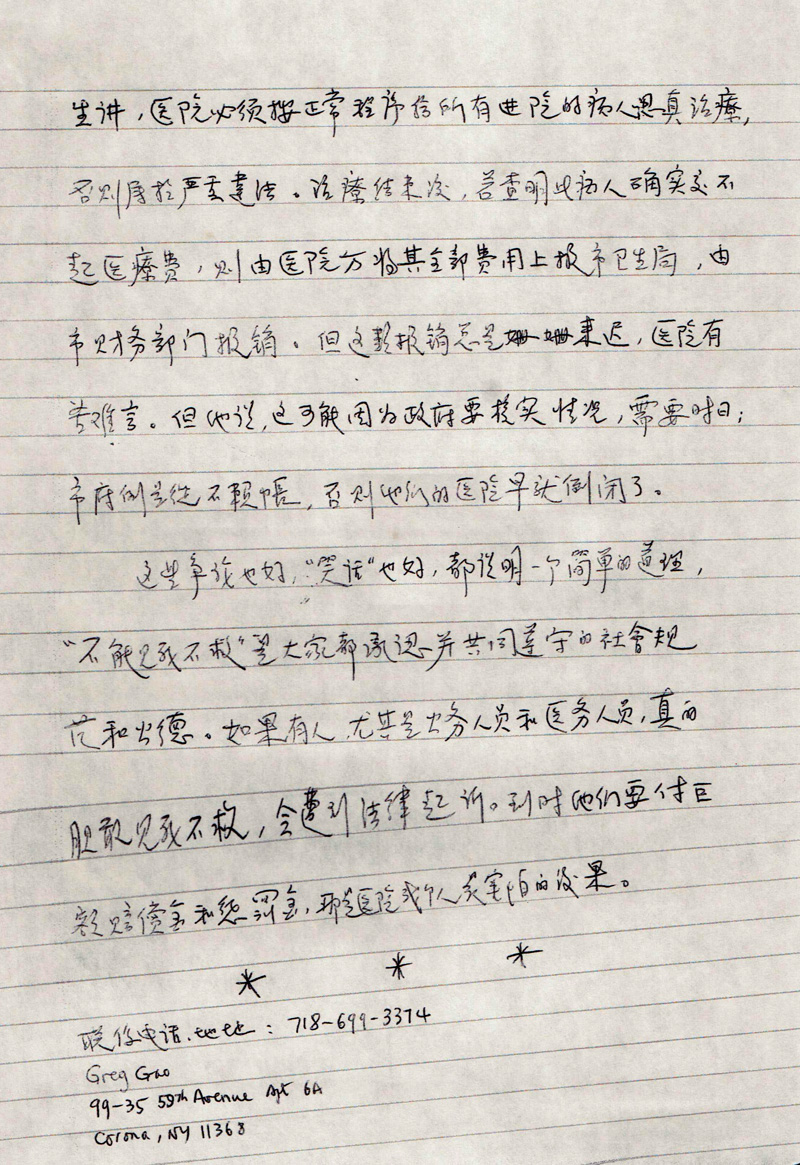 生讲，医院必须按正常程序给所有进院的病人认真治療，
否则属於严重違法。治療结束後，若查明此病人确实交不
起医療费，则由医院方将其全部费用上报市卫生局，由
市财务部门报销。但这款报销总是姗姗来迟，医院有
苦难言。但他说，这可能因为政府要核实情况，需要时日；
市府倒是从不賴帳，否则他们的医院早就倒闭了。
这些争论也好，“笑话”也好，都说明一个简单的道理，
“不能见死不救”是大家都承認并共同遵守的社會规
范和公德。如果有人，尤其是公务人员和医务人员，真的
胆敢见死不救，会遭到法律起诉。到时他们要付巨
额赔偿金和惩罚金，那是医院或个人最害怕的後果。
* * *
联系电话、地址：718-699-3374
Greg Gao
99-35 59th Avenue Apt 6A
Corona, NY 11368